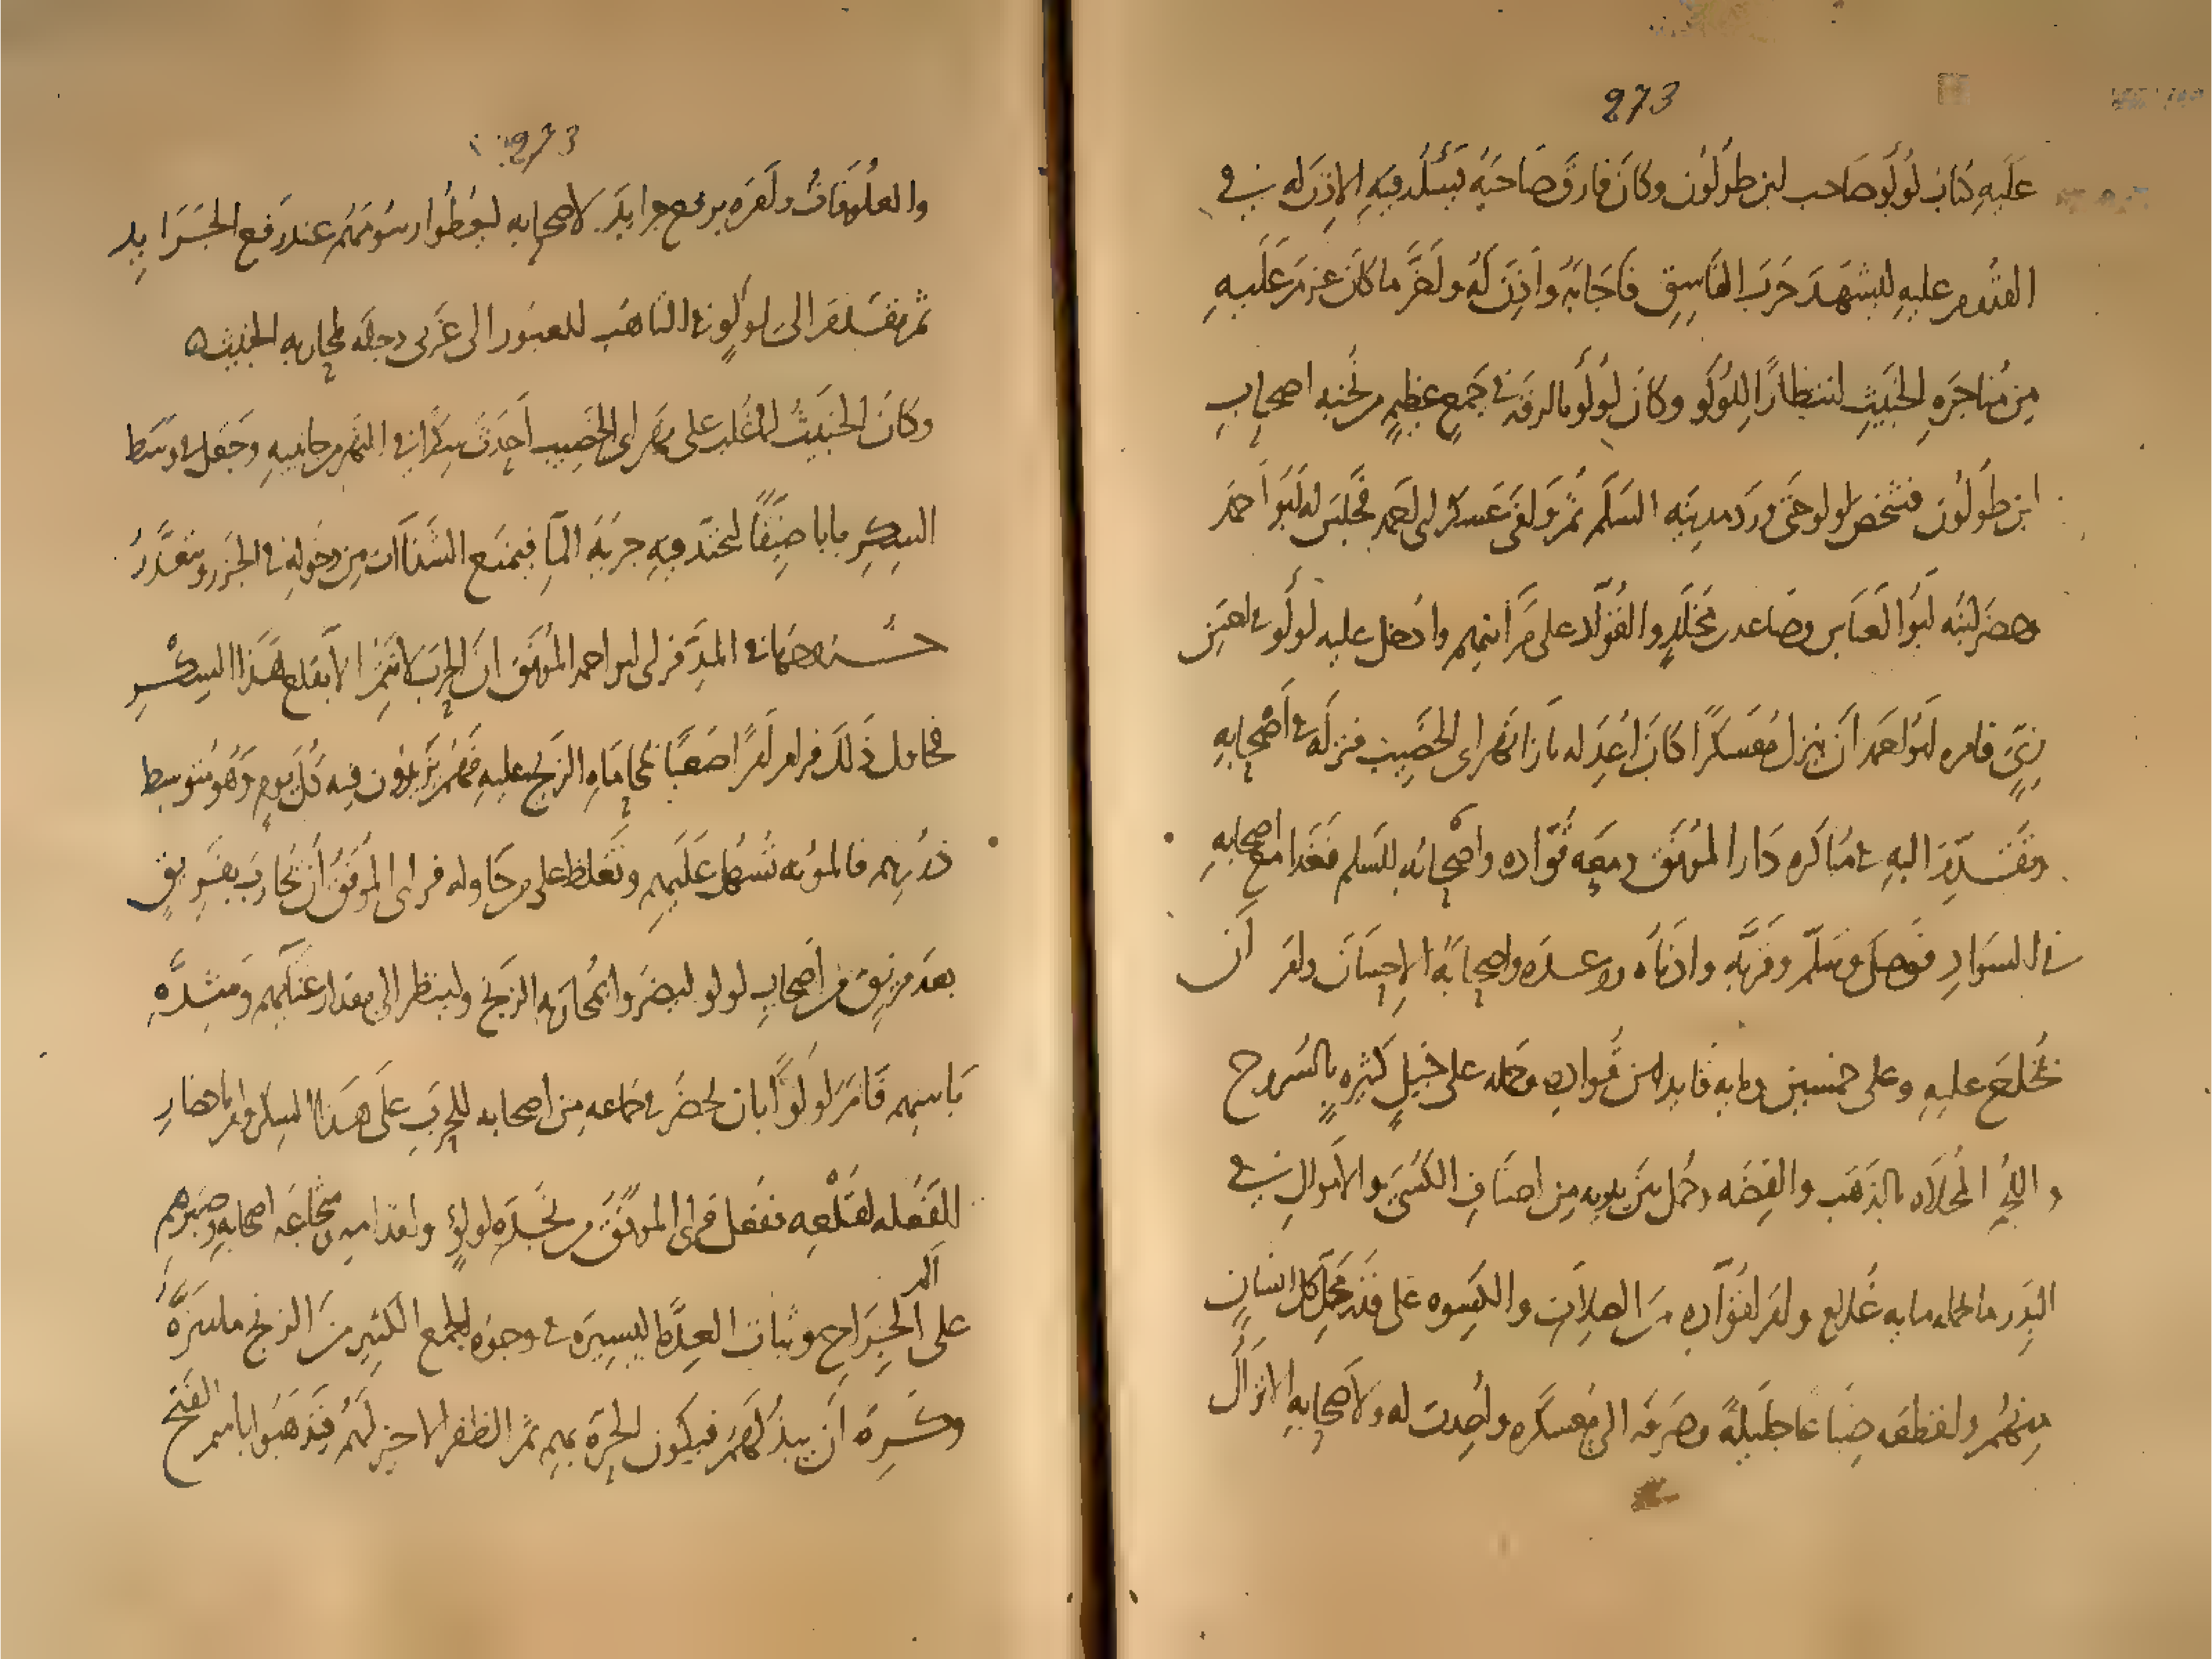 273
عَلَيهِ كتاب لُولُو صَاحب ابن طُولُون وكانَ فارق صَاحبَهُ يَسْئَلُه فيهِ الاذن له في
القُدُوم عليهِ ليشهَدَ حَرَب الفَاسِق فَاجَابَهُ وَاذِنَ لَهُ واَخَّرَ ما كان عزمَ عَلَيهِ
مِن مُنَاجَزَهِ الخَبَيثِ انتظاراً لِلُولُو وكانَ لُولُو بالرقه في جَمعٍ عظيمٍ من اصحابِ
ابن طُولُون فشخصَ لولو حَتَّى وَرَدَ مدينه السَلَم ثُمَّ وَافَى عَسكر ابى احمد فجَلَسَ له ابُو احمد
وحضر ابنُه ابُو العَبَاس وصَاعد بن مَخلَدٍ والقُوَّاد على مَرَاتبهم وادخل عليه لُولُو في احسَن
زِىٍّ فامره ابُو احمَد اَن ينزل مُعَسكَرًا كانَ اُعِدَ له بازاء نهَر ابى الخصَيب فنزله في اَصْحابهِ
وتَقَدَّمَ اليهِ في مُبَاكره دَار المُوفّق ومَعَه قُوّاده واصْحابه للسَلم فَغَدا
مع اصحابهِ
في السَوَادِ فوصَل وسَلّم وقَرَّبَه وادناه ووعده واصحابَهُ الاحِسَانَ وامَر اَن
يُخلعَ عليهِ وعلى خمسين ومايه قايد من قُوادِه وحمله على خَيلٍ كثيرهٍ بالسُروج
واللُّجُم المُحلَّاه بالذهَب والفِضَه وحُمل بَين يديه مِن اصنَافِ الكُسَى والاَموالِ في
البِدَر ما حمله مايه غُلام وامَر لقُوّادِه مِن الصِلات والكِسوه على قَدر مَحَلِ كل انسَانٍ
مِنهُم واقطَعَه ضِيَاعا جليلةً وصرَفه الى مُعَسكره واُعِدت له ولاصحابه الانزالُ
273
والعلُوفَاتُ واَمَره برفع جرايدَ لاصحابه ليُعطُوا رسُومَهُم عند رَفع الجَرَايد
ثم تقَدّمَ الى لولُوٍ في التاهُب للعبُور الى غَربى دجله لمحاربه الخبيث
وكانَ الخبيثُ لما غُلب على نهر ابى الخَصِيب اَحدَثَ سِكرًا في النهر من جانبيهِ وجَعَل في وسَط
السِكرِ بابا ضيّقاً لتحتد فيهِ جريَهُ المآ فيمنَع الشَذاآت مِن دخولِه في الجزر ويتعذّر
خروجهَا في المدّ فراى ابو احمد المُوفّق ان الحربَ لا تتمُ الا بقلع هَذا السِكْرِ
فحاول ذلكَ فرام امرًا صَعبًا لمحاماهِ الزنج عليهِ فهُم يَزيدُون فيه كُلَّ يومٍ وَهُو متوسط
دُورَهم فالمؤنه تسهُل عَليهِم وتَغلظ على من حَاوله فراى المُوفَقُ اَن يُحَاربَ بفريقٍ
بعد فريق من اصحابِ لولو ليضرَوا بمُحَاربه الزنج ولينظر الى مقدار غنآيهم وشِدَّهِ
بَاسِهم فَامَر لُولُوًا بان يحضُر في جماعه مِن اصحابه للحربِ عَلَى هَذا السِكر وامر باحضارِ
الفَعَله لقَلْعِه ففعَل فراى الموفّقُ من نجدَه لولوٍ واقدامهِ وشجاعَه اصحابهِ وصَبرهِم
على اَلم
الجِرَاحِ وثبات العِدَّه اليسِيَره في وجُوه الجَمع الكثيرِ مِن الزنج ما سَرَّهُ
وكَرِهَ اَن يبذُلَهُم فيكون الحِرَّه بهِم ثُمّ الظفر الاخير لَهُم فيَذهَبُوا باسم الفَتح